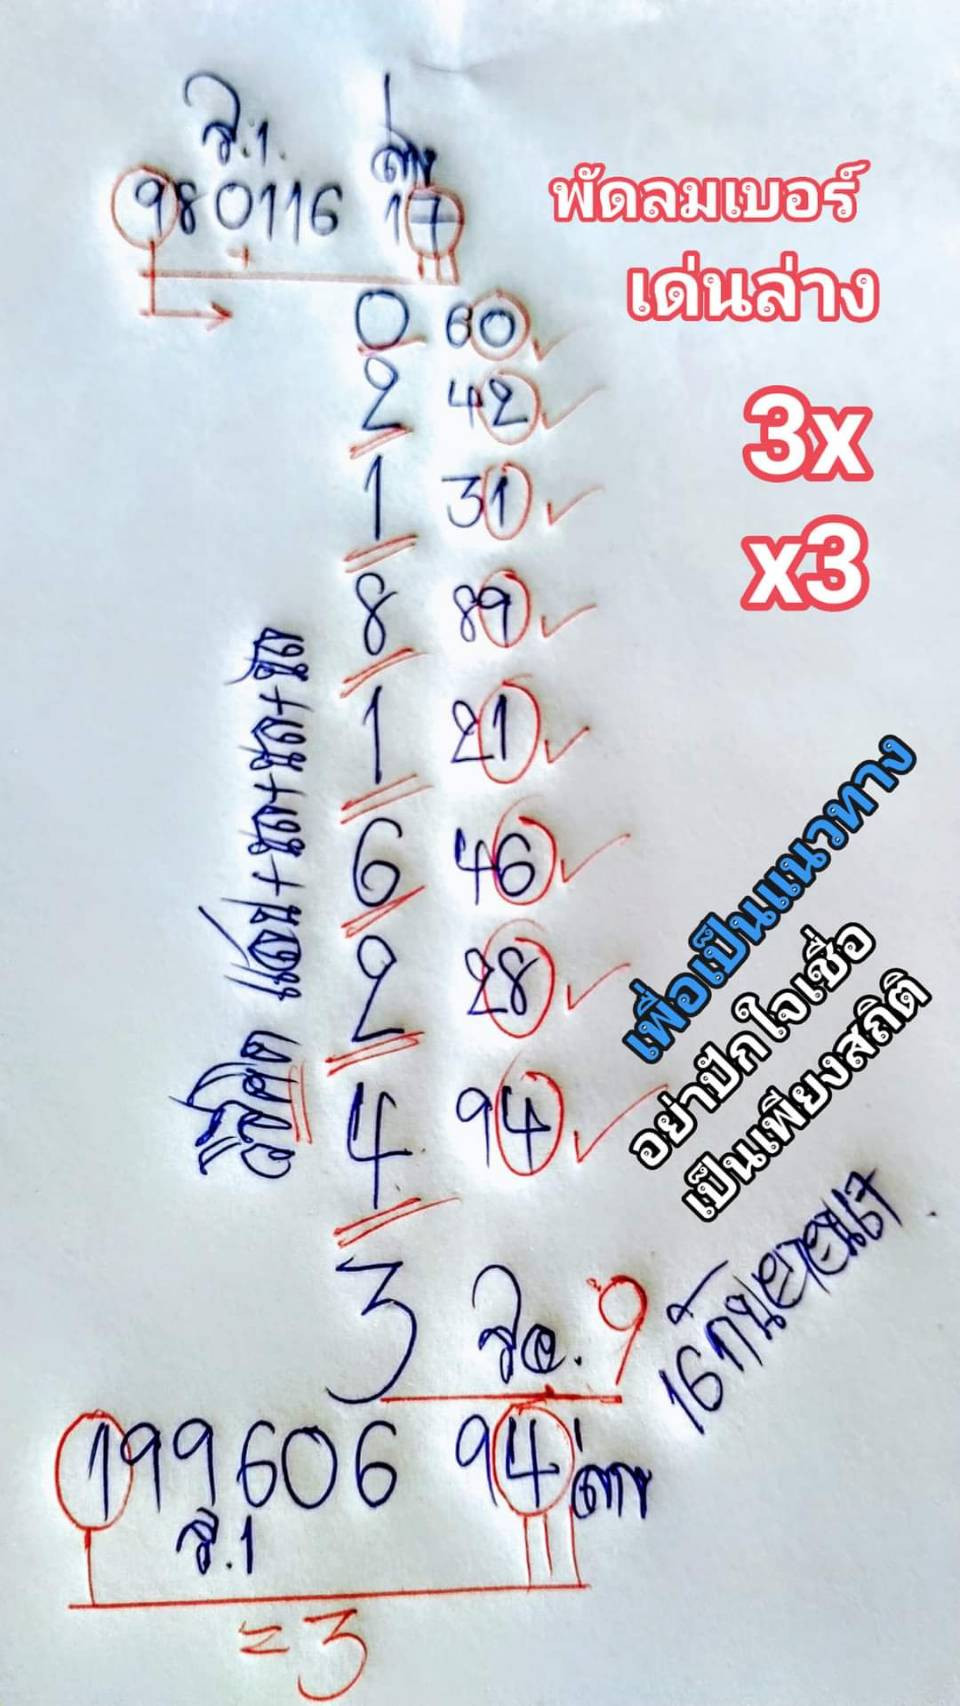 ร.1. ล่าง
980116 17
พัดลมเบอร์
เด่นล่าง
0 60
2 42
3x
1 31
x3
8 89
1 21
6 46
2 28
4 94
แสน+นต+นต+นต
เพื่อเป็นแนวทาง
อย่าปักใจเชื่อ
เป็นเพียงสถิติ
3 รอ. 9
16 กันยายน67
199606 94 ล่าง
ร.1
=3